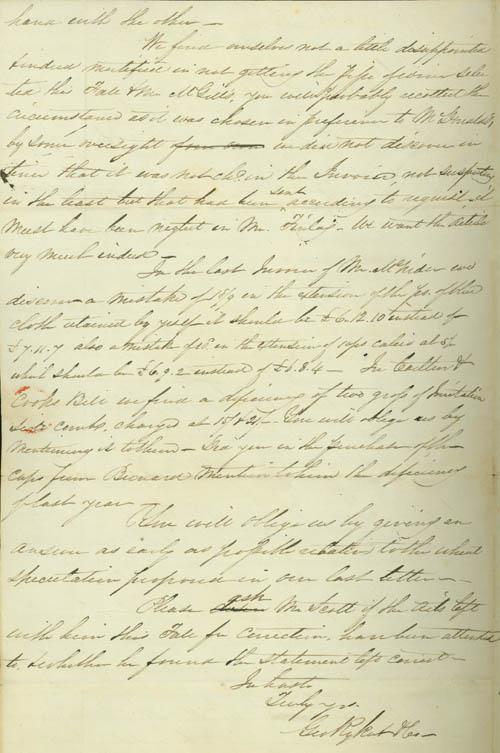 hand with the other –
We find ourselves not a little disappointed
& indeed mortified in not getting the Pipe of wine selec
ted this Fall @ Mr McGills, you will probably recollect the
circumstance as it was chosen in preference to McDonalds,
by some oversight we did not discover in
time that it was not chd in the Invoice not suspecting
in the least but that had been sent according to request it
must have been neglect in Mr Finlay – We want the article
very much indeed –
In the last Invoice of Mr McNider we
discover a mistake of 18/9 in the extension of the ps. of blue
cloth retained by yrself it should be £6.12.10 instead of
£7.11.7 also a mistake of in the extension of 10ps calico at
which should be £6.9.2 instead of £6.8.4 – In Carlton &
Cooks Bill we find a deficiency of two groce of Imitation
Side combs, charged at 15/ & 21/– You will oblige us by
Mentioning it to them – Did you in the purchase of the
caps from Bronard Mention to him the deficiency
of last year –
You will oblige us by giving an
answer as early as possible relative to the wheat
speculation proposed in our last letter –
Please ask Mr Scott if the left
with him this Fall for correction, has been attended
to, & whether he found the statement left correct –
In haste
Truly yrs.
Geo Rykert & Co –